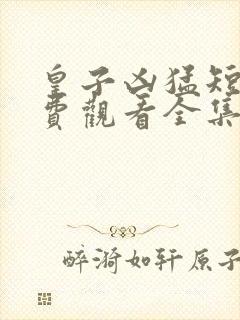 皇子凶猛短
費觀看全集
醉漪如轩原子